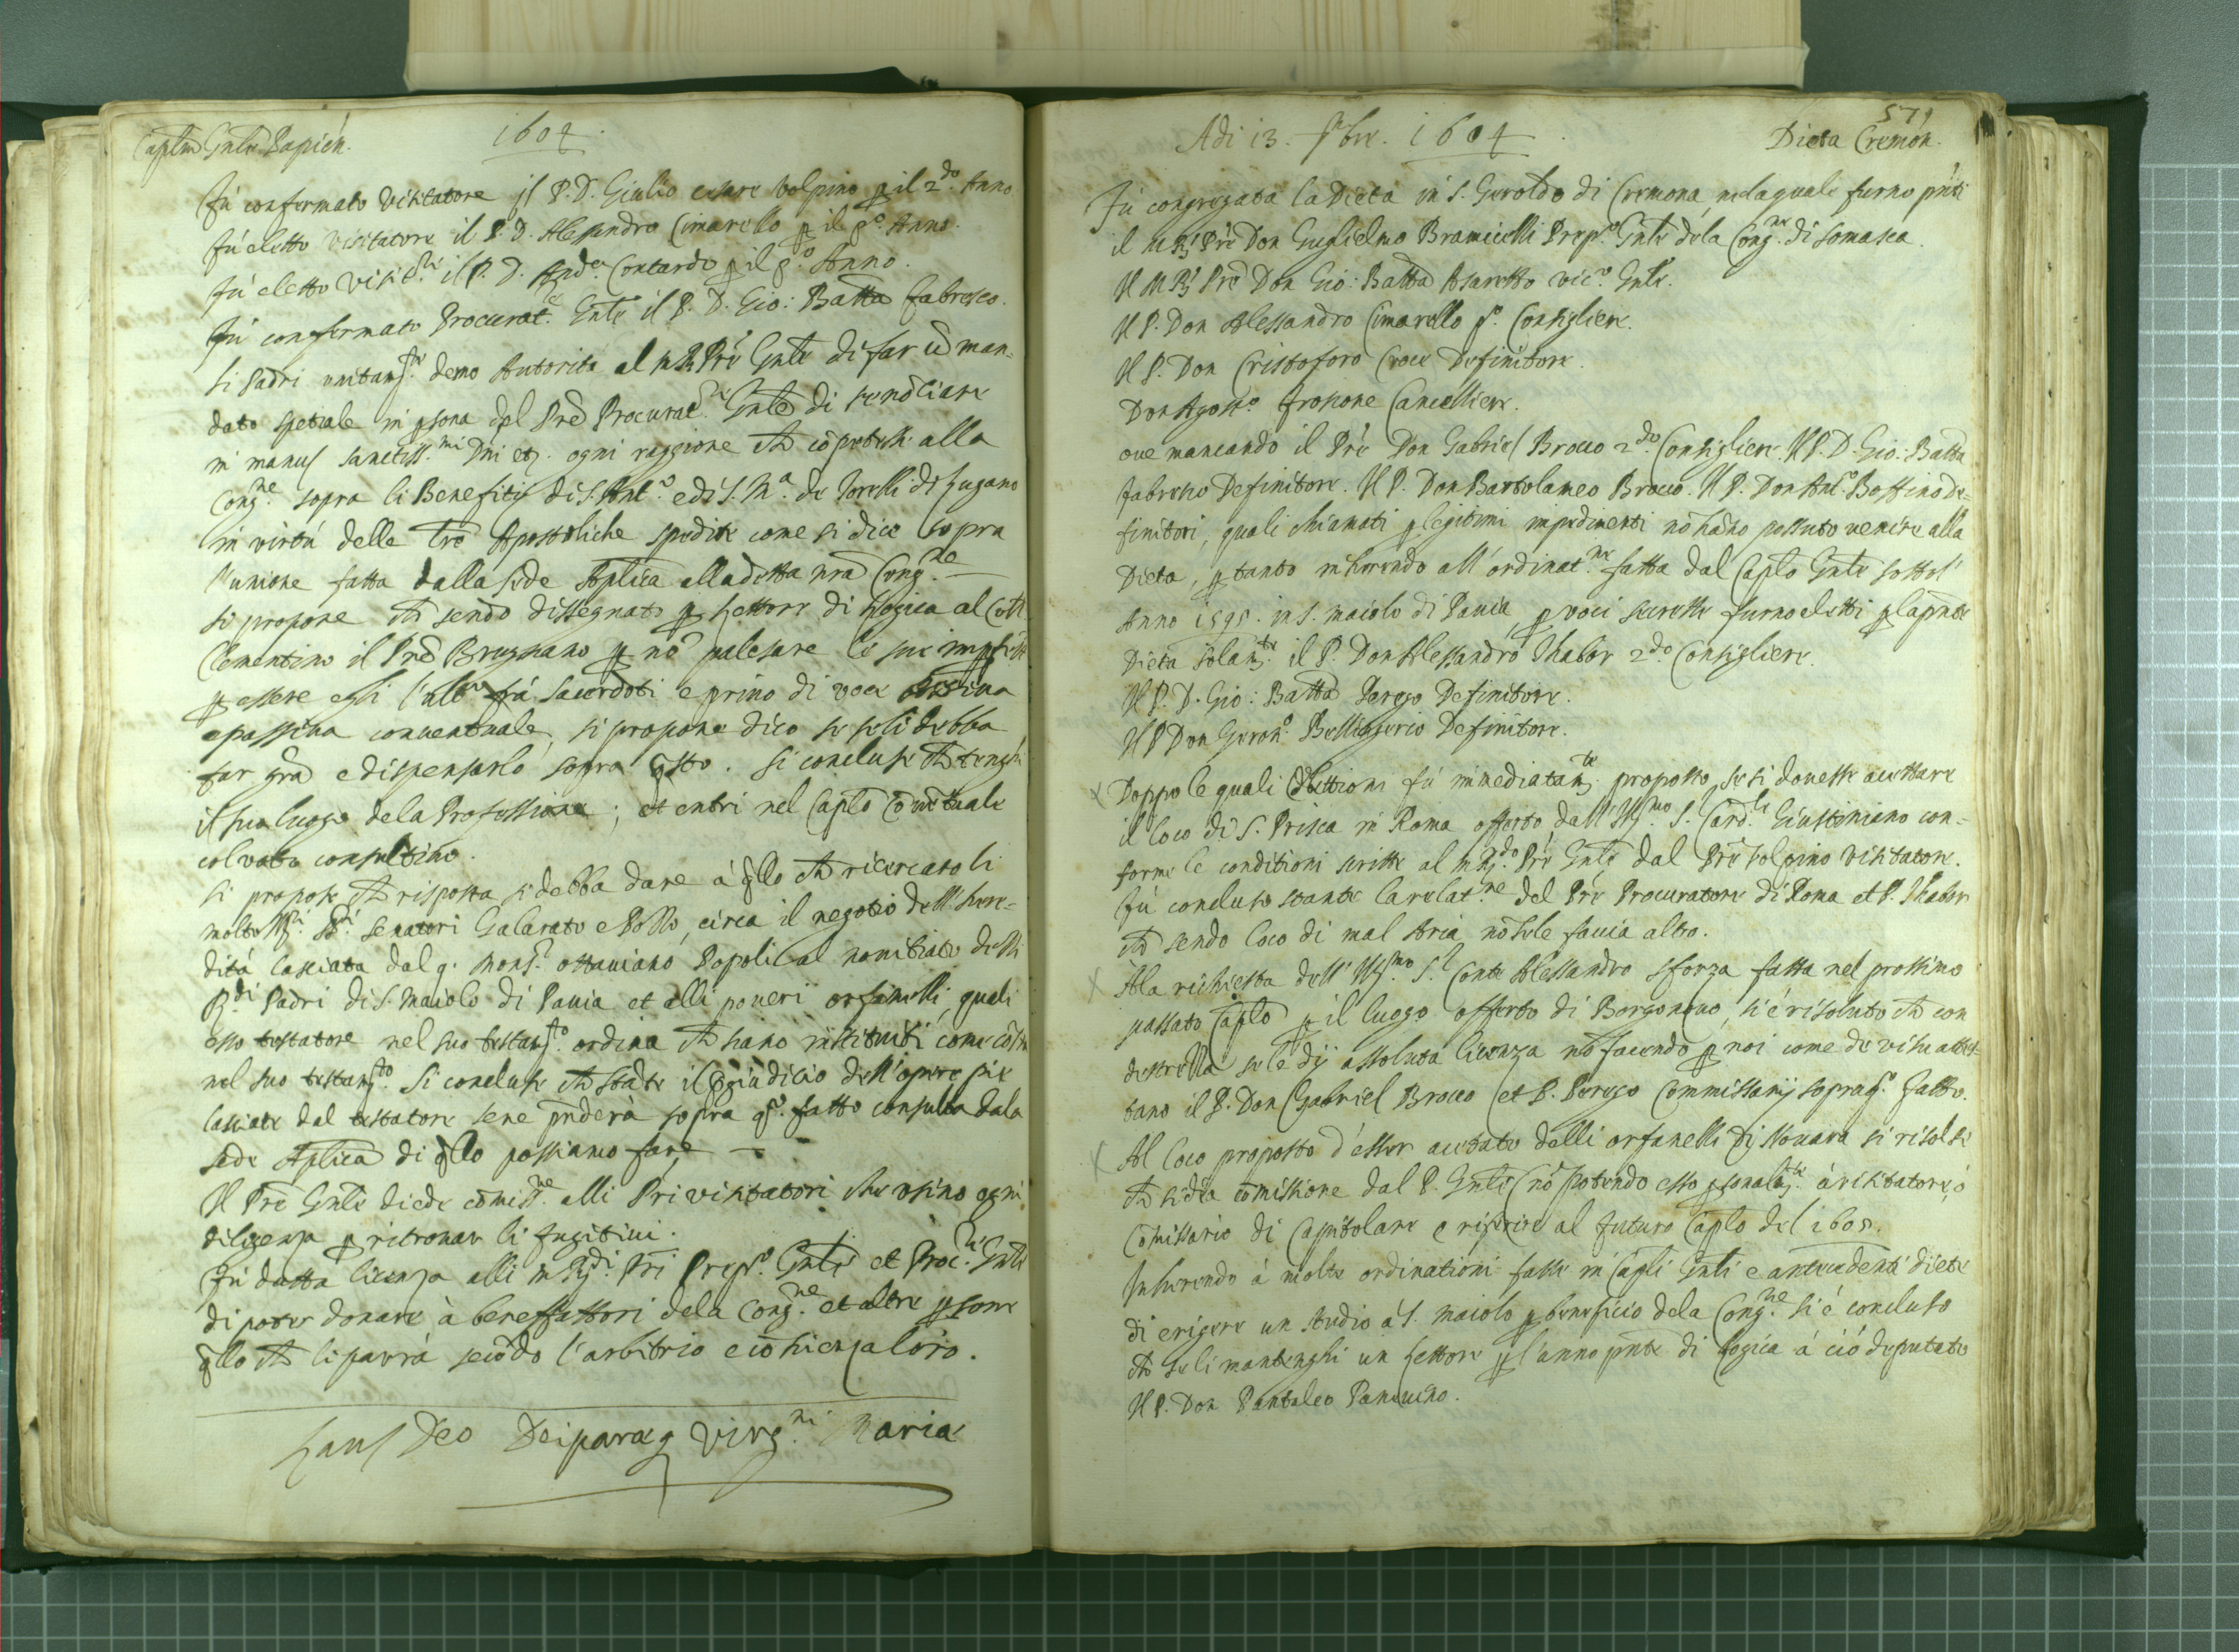 Captm Gnle Papien.
1604.
Fu confermato Visitatore il P. D. Giulio cesare Volpino p il 2.do Anno
fu eletto visitatore il P. D. Alessandro Cimarello p il p.o Anno.
Fu eletto Visit.re il P. D. And.a Contardo p il p.o Anno.
Fu confermato Procurat.e Gnle il P. D. Gio: Batta fabresco.
li Padri unitam.te derno Autorità al M R Prē Gnle di far ū man=
dato spetiale in psona del Prē Procurat.re Gnle di renōtiare
in manus sanctiss.mi Dni etz. ogni raggione ch cōpetesse alla
Cong.ne sopra li Benefitij di S. Ant.o e di S. M.a de Torelli di Lugano
in virtù delle Lre Apostoliche spedite come si dice sopra
l'unione fatta dalla sede Aplica alla detta nra Cong.ne
si propone ch sendo dissegnato p Lettore di Logica al Coll.
Clementino il Prē Brugnano p nō palesare le sue imperf.
p essere egli l'ult.o frà sacerdoti e privo di voce attiva
e passiva conventuale, si propone dico se seli debba
far gra e dispensarlo sopra qsto. si concluse ch tenghi
il suo luogo dela Professione; et entri nel Caplo Cōventuale
col voto consultivo.
si propose ch risposta si debba dare à qllo ch ricercato li
molto Ill.ri SS.ri senatori Galarato e Posso, circa il negotio dell'here=
dità lasciata dal q. Mons.r Ottaviano Popoli al nominato delli
R.di Padri di S. Maiolo di Pavia et alli poveri orfanelli, quali
esso testatore nel suo testam.to ordina ch siano instituiti come cōsta
nel suo testam.to. Si concluse ch stāte il Giudicio dell'opere pie
lasciate dal testatore sene prēderà sopra q.o fatto consulta dala
sede Aplica di qllo possiamo fare —
Il Prē Gnle diede cōmiss.ne alli Pri visitatori che usino ogni
diligenza p ritrovar li fugitivi.
Fu datta licenza alli M R.di Pri Prep.o Gnle et Proc.re Gnle
di poter donare à benefattori dela Cong.ne et altre psone
qllo ch li parrà secōdo l'arbitrio e cōscienza loro.
Laus Deo Deiparaeq Virg.ni Mariae
571
Adi 13. 9bre. 1604.
Dieta Cremon.
Fu congregata la Dieta in S. Geroldo di Cremona, nela quale furno pnti
il M R. Prē Don Guglielmo Bramicelli Prep.o Gnle dela Cong.ne di somasca.
Il M R. Prē Don Gio: Batta Assaretto vic.o Gnle.
Il P. Don Alessandro Cimarello p.o Consigliere.
Il P. Don Cristoforo Croce Definitore.
Don Agost.o Frosone Cancelliere.
ove mancando il Prē Don Gabriel Brocco 2.do Consigliere. Il P. D. Gio: Batta
fabresco Definitore. Il P. Don Bartolameo Brocco. Il P. Don Ant.o Boffino de=
finitori, quali chiamati p legitimi impedimenti nō hāno possuto venire alla
Dieta, p tanto inherendo all'ordinat.ne fatta dal Caplo Gnle sotto l'
Anno 1595. in S. maiolo di Pavia, p voci secrette furno eletti p la pnte
Dieta solam.te il P. Don Alessandro Thabor 2.do Consigliere.
Il P. D. Gio: Batta Perego Definitore.
Il P Don Geron.o Bellingerio Definitore.
X Doppo le quali elettioni fu immediatam.te proposto, se si dovesse accettare
il loco di S. Prisca in Roma offerto dall'Ill.mo S.r Card.le Giustiniano con=
forme le conditioni scritte al M R.do Prē Gnle, dal Prē Volpino Visitatore.
fu concluso stante la relat.ne del Prē Procuratore di Roma et P. Thabor
ch sendo loco di mal Aria nō sele facia altro.
X Ala richiesta dell'Ill.mo S.r Conte Alessandro Sforza fatta nel prossimo
passato Caplo p il luogo offerto di Borgonovo, si è risoluto ch con
destrezza sele dij assoluta licenza nō facendo p noi come de visu attes=
tano il P. Don Gabriel Brocco et P. Perego Commissarij sopra q.o fatto.
X Al loco proposto d'esser accettato delli orfanelli di Novara si risolse
ch si dia cōmissione dal P. Gnle (nō potendo esso psonalm.te) à visitatore, ò
Cōmissario di Capitolare e riferire al futuro Caplo del 1605.
Inherendo à molte ordinationi fatte in Capli Gnli e antecedenti diete
di erigere un studio à S. maiolo p beneficio dela Cong.ne si è concluso
ch seli mantenghi un Lettore p l'anno pnte di Logica à ciò deputato
Il P. Don Pantaleo Panvuino.